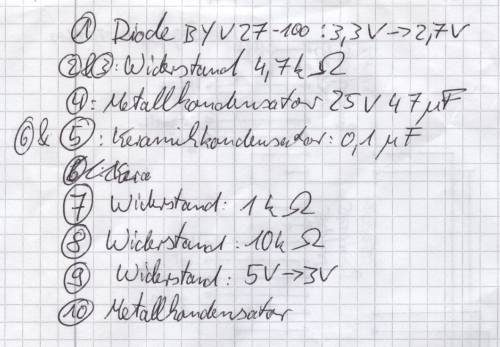 ① Diode BYV27-100: 3,3V → 2,7V
②&③: Widerstand 4,7k Ω
④: Metallkondensator 25V 47µF
⑥& ⑤: Keramikkondensator: 0,1µF
⑦ Widerstand: 1k Ω
⑧ Widerstand: 10k Ω
⑨ Widerstand: 5V → 3V
⑩ Metallkondensator